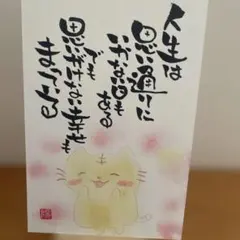 人生は
思い通りに
いかない日も
ある
でも
思いがけない幸せも
まっている